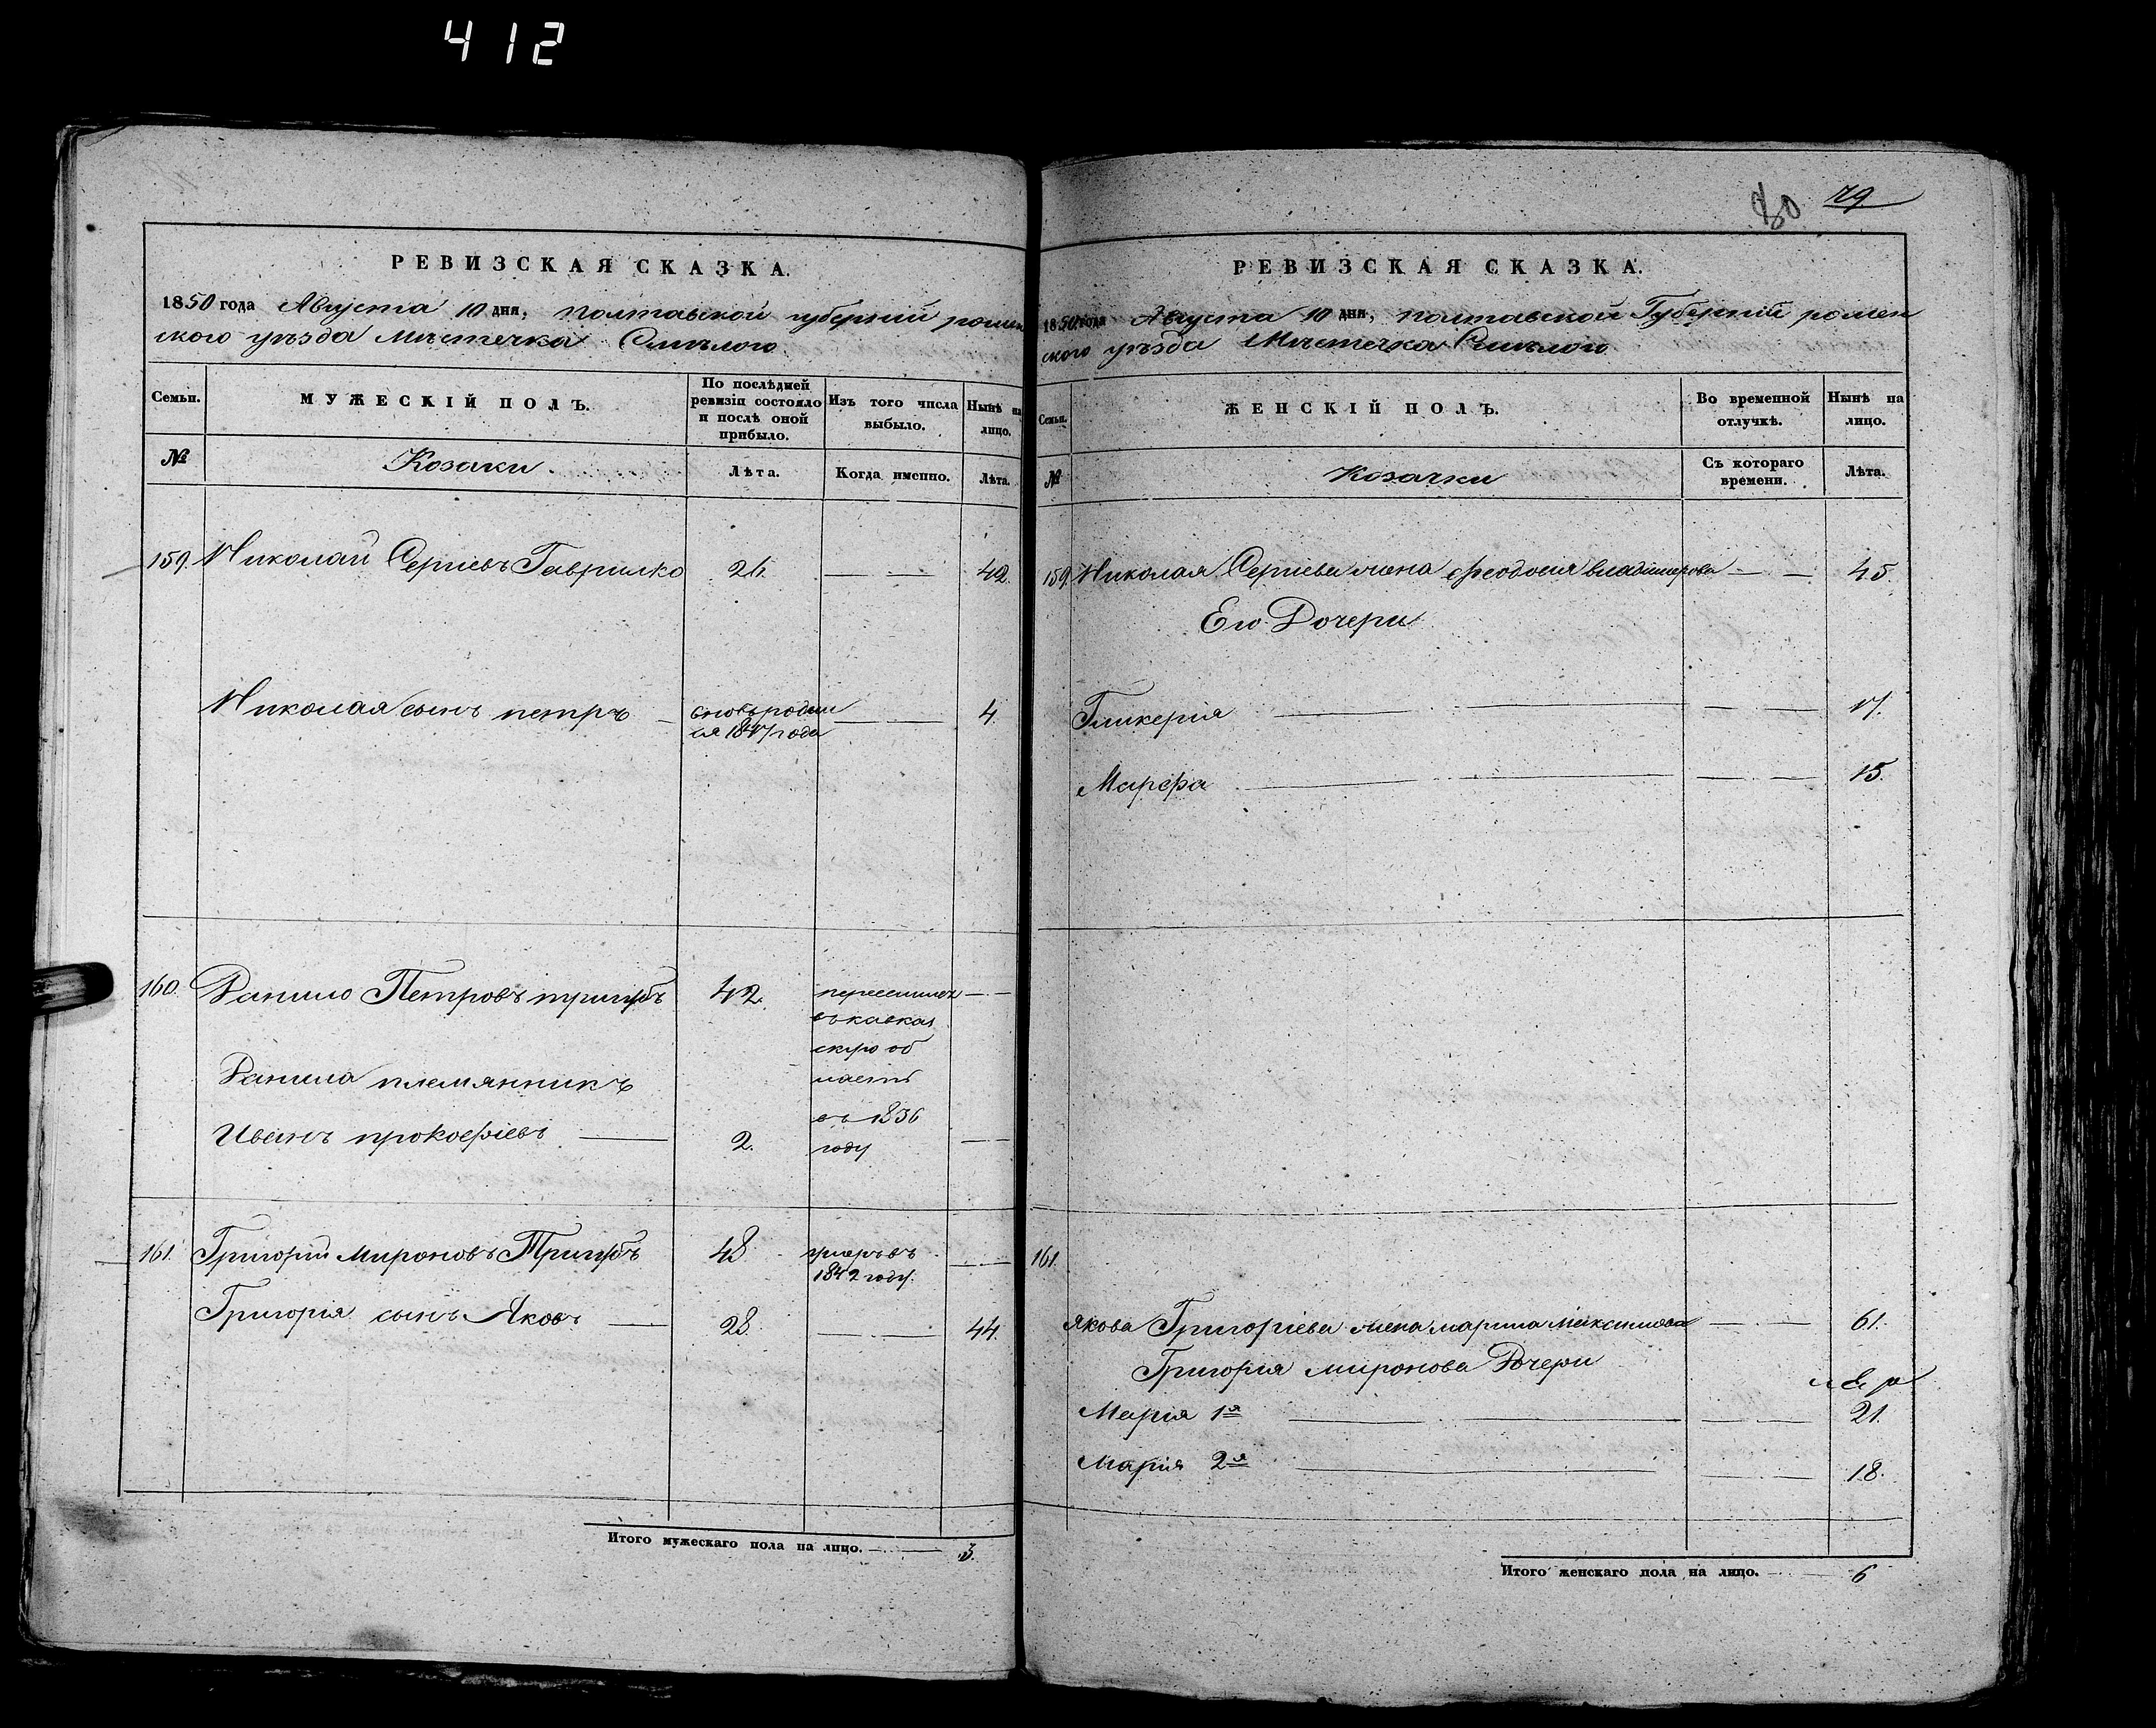 412
РЕВИЗСКАЯ СКАЗКА.
1850 года Августа 10 дня, полтавской губерніи ромен
ского уѣзда мѣстечка Смѣлого
Семьи.
МУЖЕСКІЙ ПОЛЪ.
По послѣдней
ревизіи состояло
и послѣ оной
прибыло.
Изъ того числа
выбыло.
Нынѣ на
лицо.
№
Козаки
Лѣта.
Когда именно.
Лѣта.
159. Николай Сергіевъ Гаврилко 26. 42.
Николая сынъ петръ вновь родил 4.
ся 1847 года
160. Данило Петровъ тригубъ 42. переселился
въ кавказ
скую об
ласть
Данила племянникъ
въ 1836
Иванъ прокофіевъ 2. году
161. Григорій мироновъ Тригубъ 48. умеръ въ
1842 году.
Григорія сынъ Яковъ 28. 44.
Итого мужескаго пола на лицо. 3.
80 79
РЕВИЗСКАЯ СКАЗКА.
1850 года Августа 10 дня, полтавской Губерніи ромен
ского уѣзда Мѣстечка Смѣлого
Семьи.
ЖЕНСКІЙ ПОЛЪ.
Во временной
отлучкѣ.
Нынѣ на
лицо.
№
Козачки
Съ котораго
времени.
Лѣта.
159. Николая Сергіева жена феодосія владимерова 45.
Его Дочери
Гликерія 17.
Марфа 15.
161.
Якова Григоріева жена марина максимова 61.
Григорія миронова Дочери
Марія 1я 21.
Марія 2я 18.
Итого женскаго пола на лицо. 6